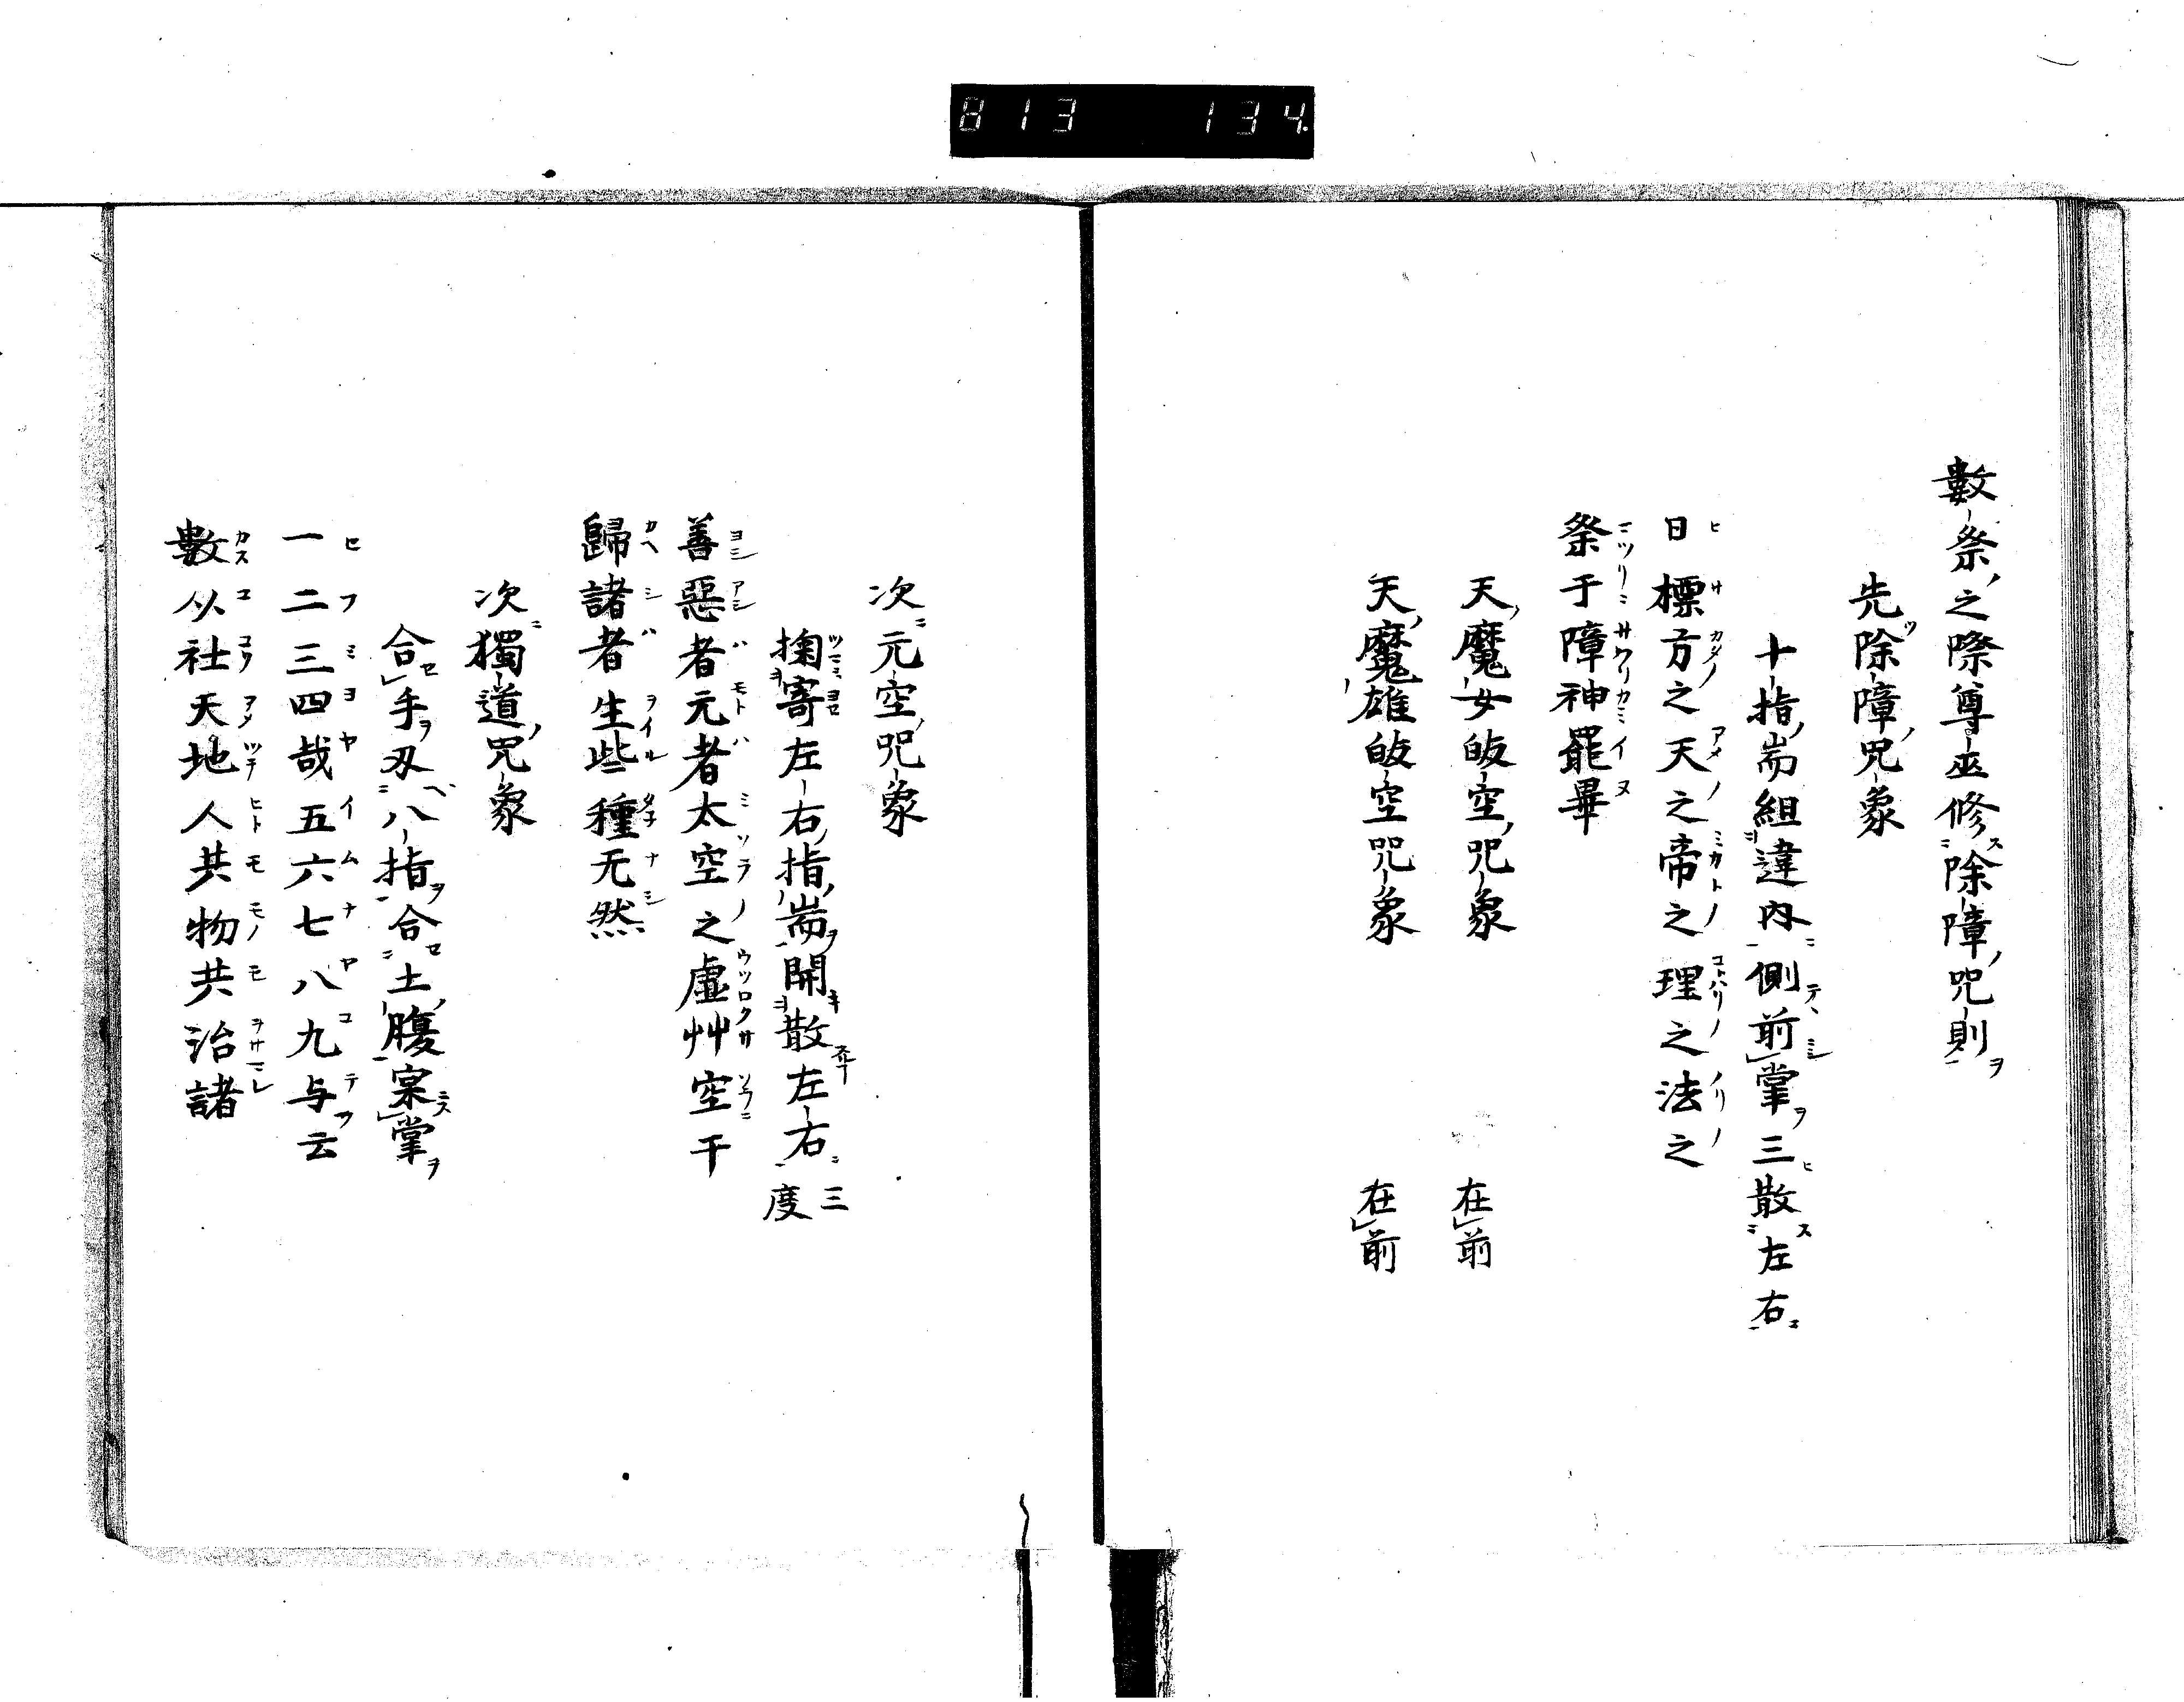 813 134.
數祭之際尊巫修除障咒則
先除障咒象
十指耑組違内側前掌三散左右
日標方之天之帝之理之法之
祭于障神罷畢
天魔女皈空咒象 在前
天魔雄皈空咒象 在前
次元空咒象
掬寄左右指耑開散左右三度
善惡者元者太空之虛艸空干
歸諸者生些種无然
次獨道咒象
合手刃八指合土腹宲掌
一二三四哉五六七八九与云
數从社天地人共物共治諸